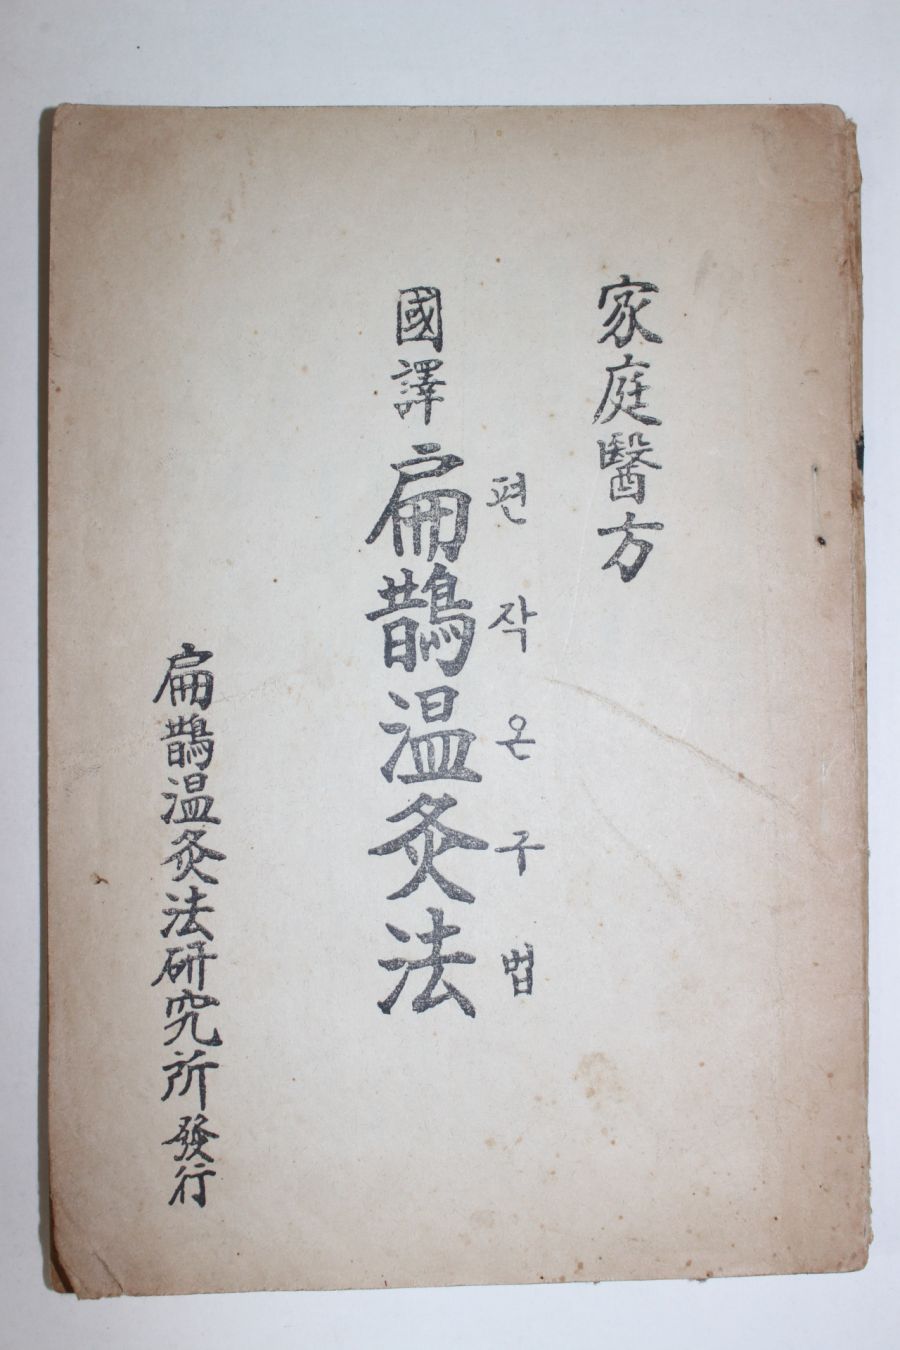 家庭醫方
편작온구법
國譯 扁鵲溫灸法
扁鵲溫灸法硏究所 發行